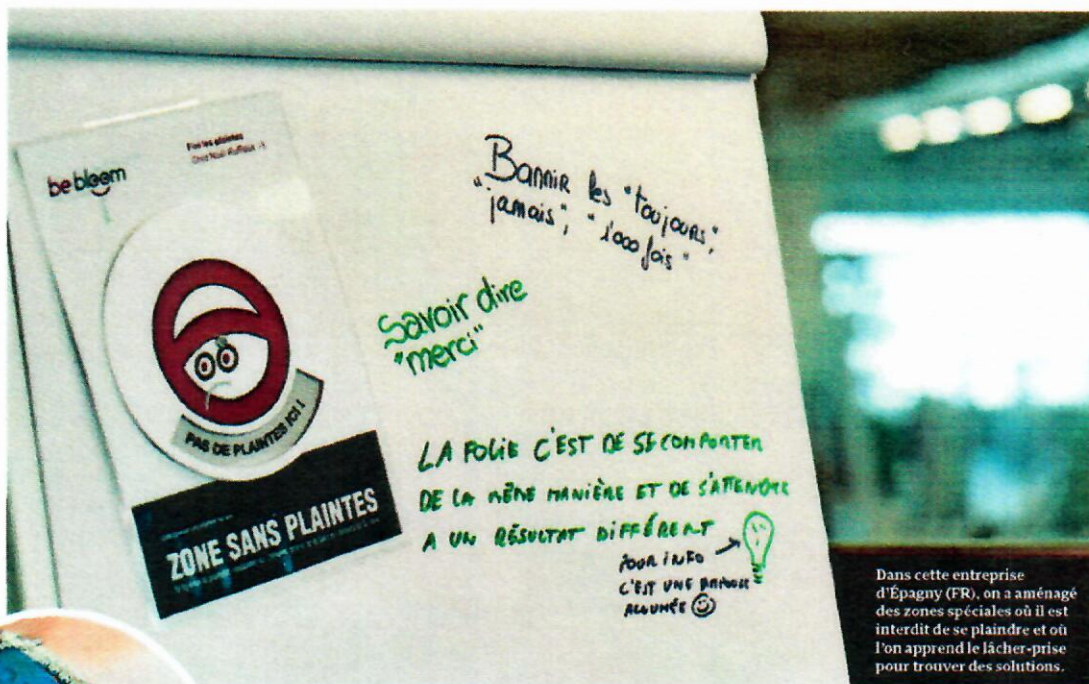 be bloom
Fini les plaintes
Chez Noël Ruffieux
PAS DE PLAINTES ICI !
ZONE SANS PLAINTES
Bannir les "toujours",
"jamais", "1'000 fois"
Savoir dire
"merci"
LA FOLIE C'EST DE SE COMPORTER
DE LA MÊME MANIÈRE ET DE S'ATTENDRE
A UN RÉSULTAT DIFFÉRENT
POUR INFO
C'EST UNE
ALLUMÉE
Dans cette entreprise
d'Épagny (FR), on a aménagé
des zones spéciales où il est
interdit de se plaindre et où
l'on apprend le lâcher-prise
pour trouver des solutions.